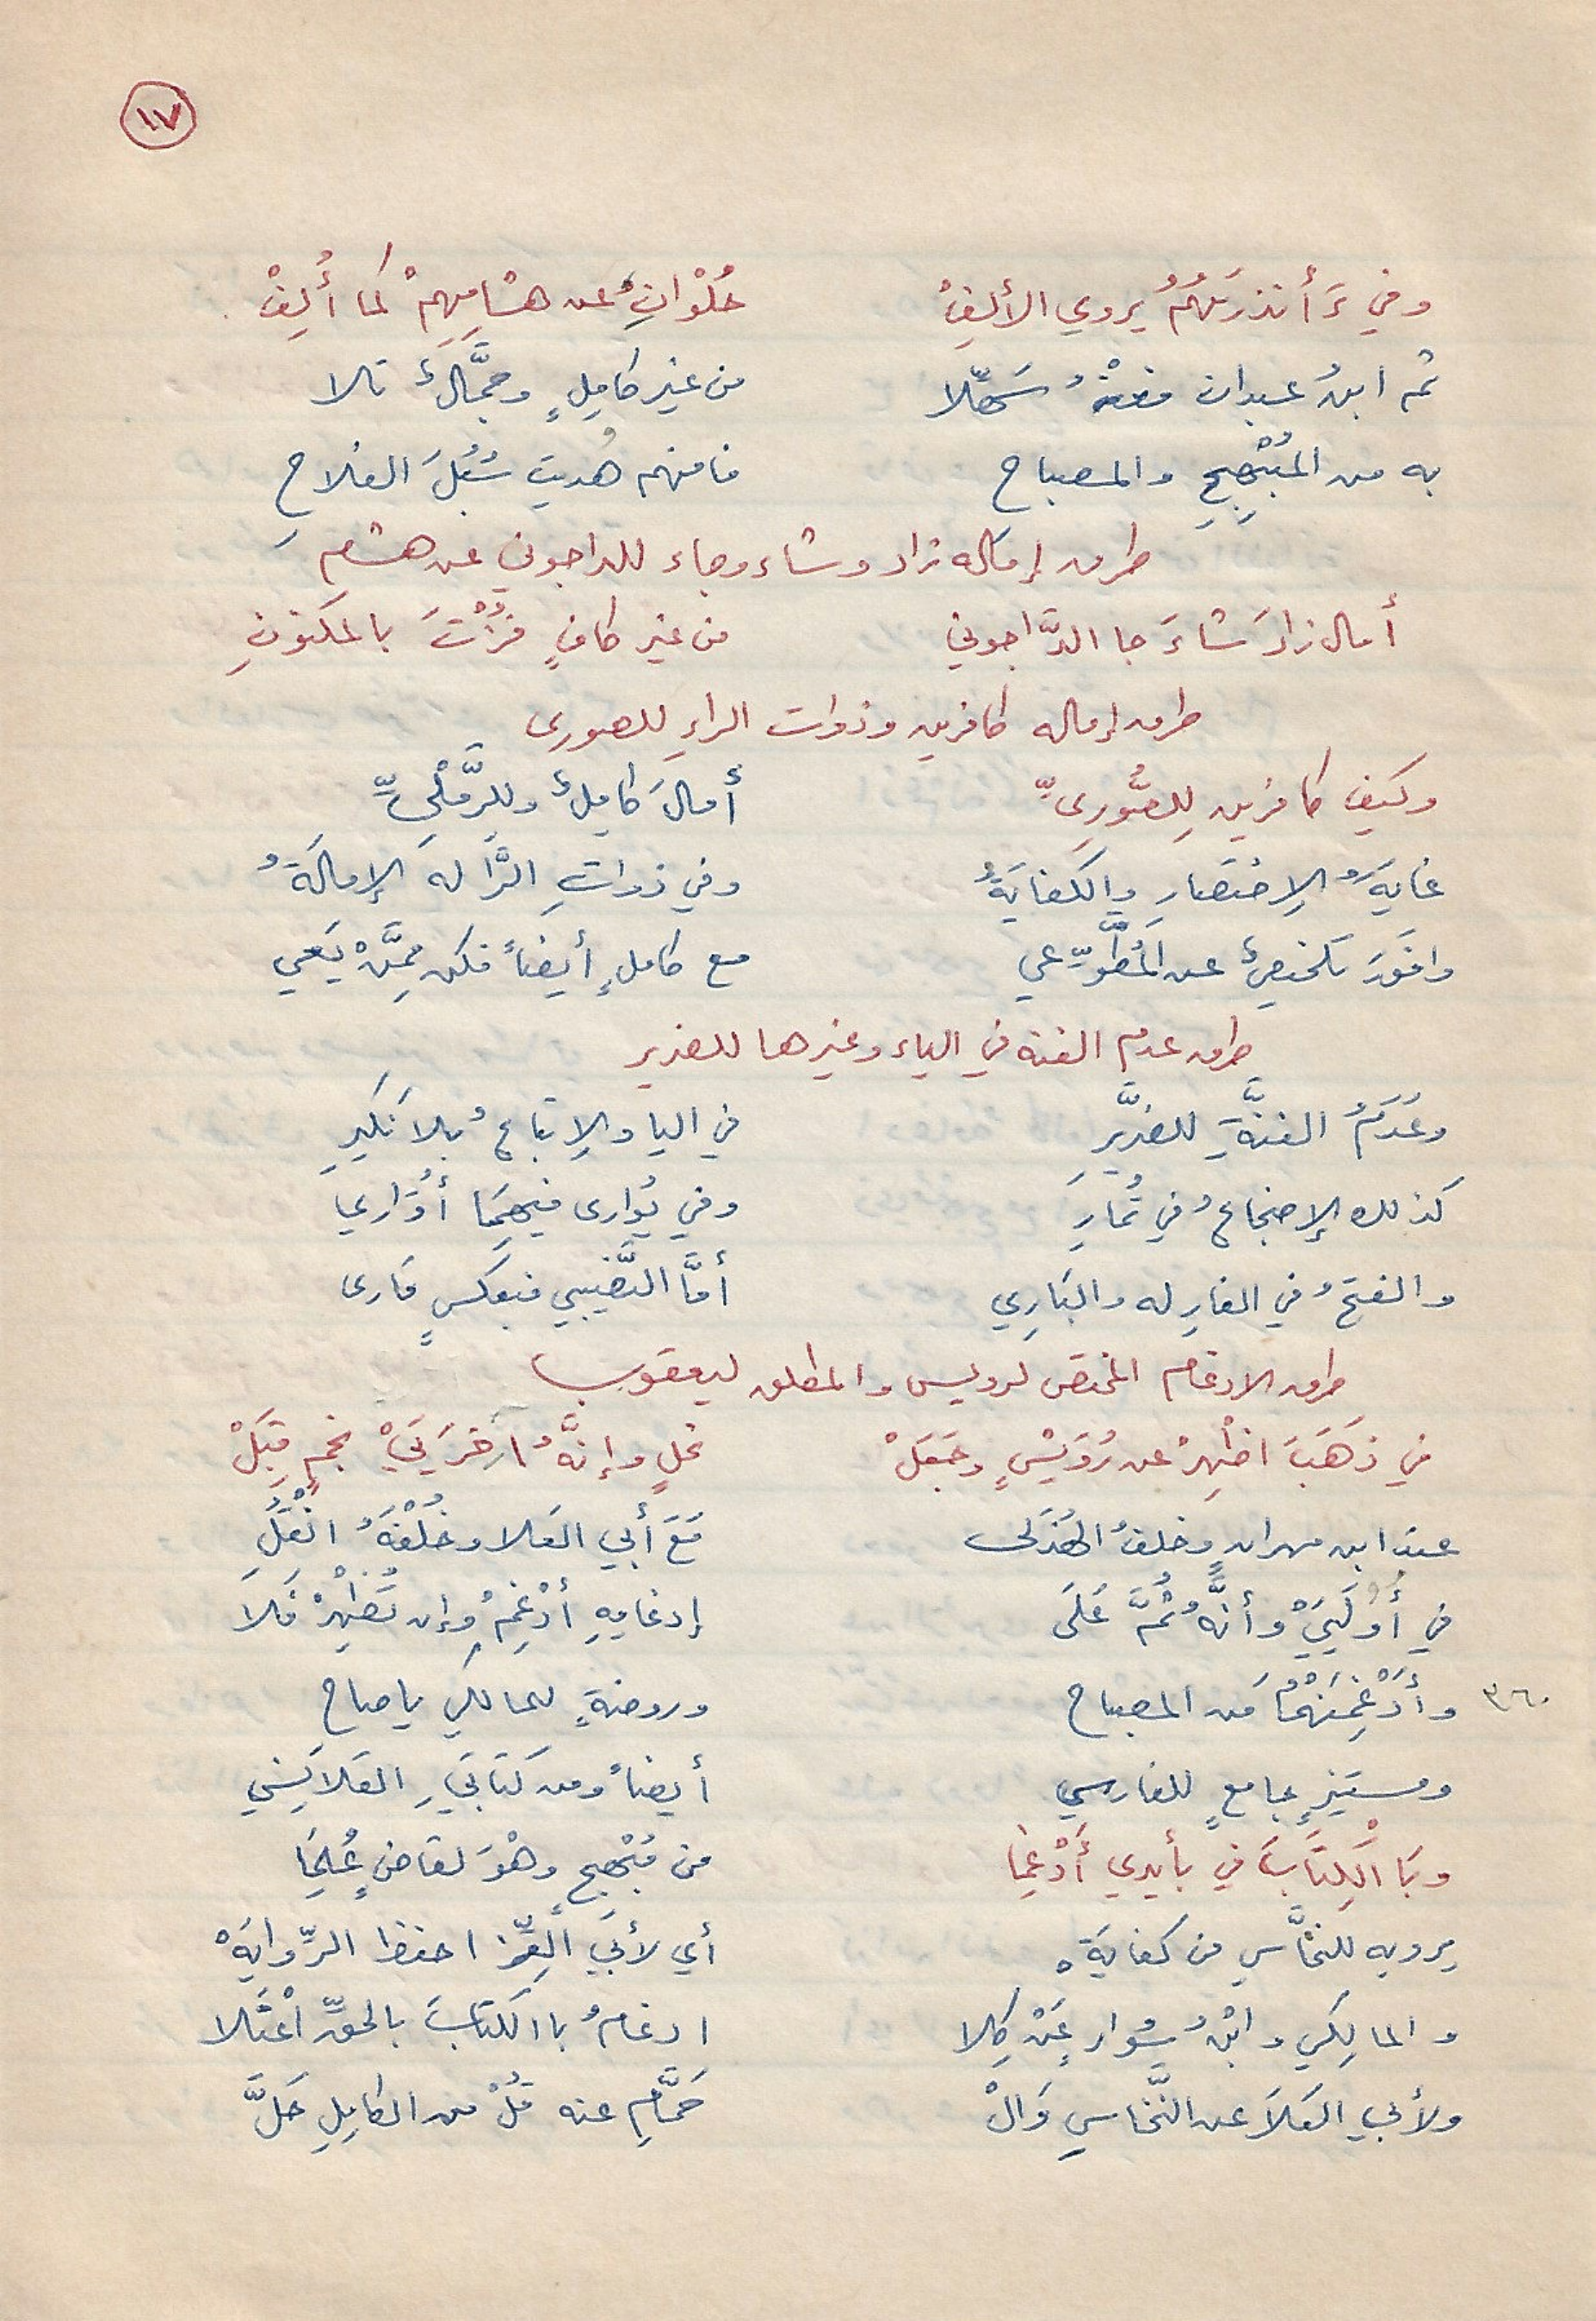 ١٧
وفي ءَأَنذرتَهُمُ يروي الألِفْ حُلْوانِ عن هشامِهِمْ كما أُلِفْ
ثم ابنُ عبدان فعنْهُ سَهّلا من غير كامِلٍ وجمَّالٌ تلا
به من المُبْهِجِ والمصباح فافهم هُديتَ سُبُلَ الفلاحِ
طرق إمالة زاد وشاء وجاء للداجوني عن هشام
أمال زادَ شاءَ جا الدَّاجوني من غير كافٍ فُزْتَ بالمكنونِ
طرق إمالة كافرين وذوات الراءِ للصوري
وكيف كافرين لِلصُّورِيِّ أمالَ كامِلٌ وللرَّمْلِيِّ
غايَةُ الِاختصارِ والكفايَةُ وفي ذواتِ الرَّا له الإمالَةُ
وافَقَ تلخيصٌ عن المُطَّوِّعي مع كاملٍ أيضاً فكن مِمَّنْ يَعي
طرق عدم الغنة في الياء وغيرها للضرير
وعَدَمُ الغنَّةِ للضَّريرِ في اليا والِاتباعُ بلا نَكيرِ
كذلك الإضجاعُ في تُمارِ وفي يُوارى فيهِمَا أُوَاري
والفتحُ في الغارِ له والبَارِي أمَّا النَّصيبي فبعكسٍ قارى
طرق الادغام المختص لرويس والمطلق ليعقوب
في ذَهَبَ اظْهِرْ عن رُوَيْسٍ وجَعَلْ نحلٍ وإنَّهُ اخرَيَيْ نجمٍ قِبَلْ
عند ابن مهرانٍ وخلفُ الهُذَلى مَعَ أبي العَلا وخُلْفَهُ انْقُلِ
في أُولَيَيْ وأنَّهُ ثُمَّ عَلَى إدغامِهِ أدْغِمْ وإن تُظْهِرْ فَلاَ
٣٦٠ وأَدْغِمَنْهُمُ من المصباح وروضةٍ للمالكي يا صاح
ومستنيرٍ جامعٍ للفارسي أيضاً ومن كتابَيِ القلانِسي
وبَا الْكِتَابَ في بأيدي أُدْغِمَا من مُبْهِجٍ وهْوَ لقاضٍ عُلِمَا
يرويه للنخَّاسِ من كفايَةْ أي لأبي العِزِّ احفظ الرِّوايَهْ
والمالِكي وابْنُ سُوارٍ عَنْ كِلا ادغامُ با الكتابَ بالحقِّ اعْتَلا
ولأبي العَلاَ عن النَّخاسِ وَالْ حَمَّامِ عنه قُلْ من الكامِلِ حَلَّ